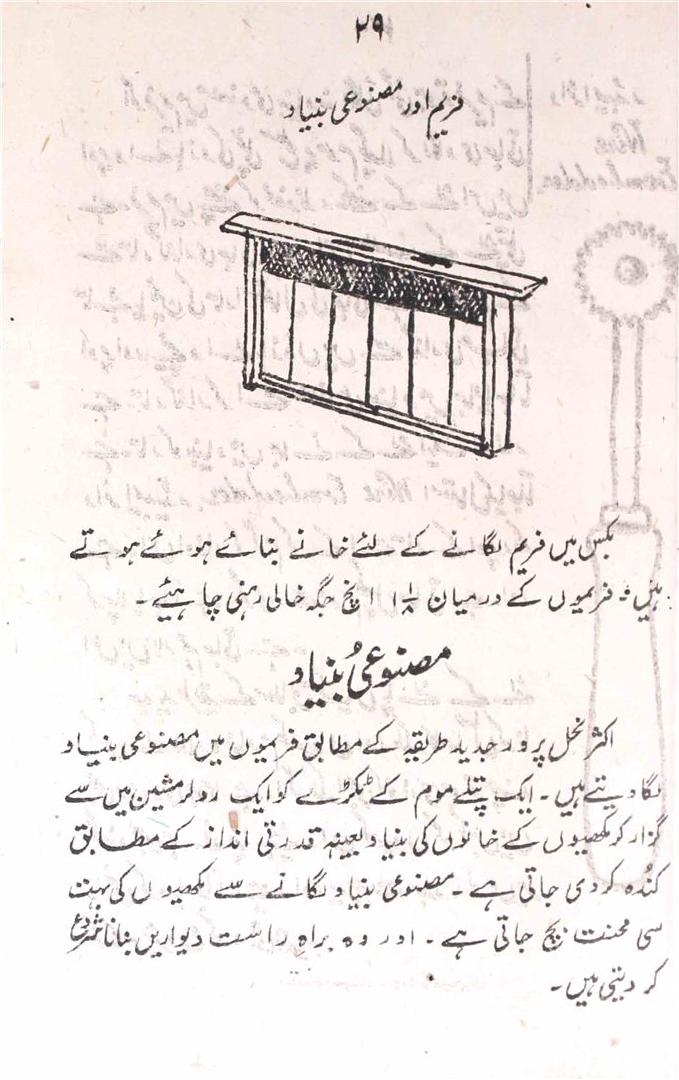 ۲۹
فریم اور مصنوعی بنیاد
بکس میں فریم لگانے کے لئے خانے بنائے ہوئے ہوتے
ہیں۔ فریموں کے درمیان ۱ ۱/۸ انچ جگہ خالی رہنی چاہیئے۔
مصنوعی بُنیاد
اکثر نحل پرور جدید طریقہ کے مطابق فریموں میں مصنوعی بنیاد
لگا دیتے ہیں۔ ایک پتلے موم کے ٹکڑے کو ایک رولر مشین میں سے
گزار کر مکھیوں کے خانوں کی بنیاد بعینہٖ قدرتی انداز کے مطابق
کندہ کر دی جاتی ہے۔ مصنوعی بنیاد لگانے سے مکھیوں کی بہت
سی محنت بچ جاتی ہے۔ اور وہ براہِ راست دیواریں بنانا شروع
کر دیتی ہیں۔